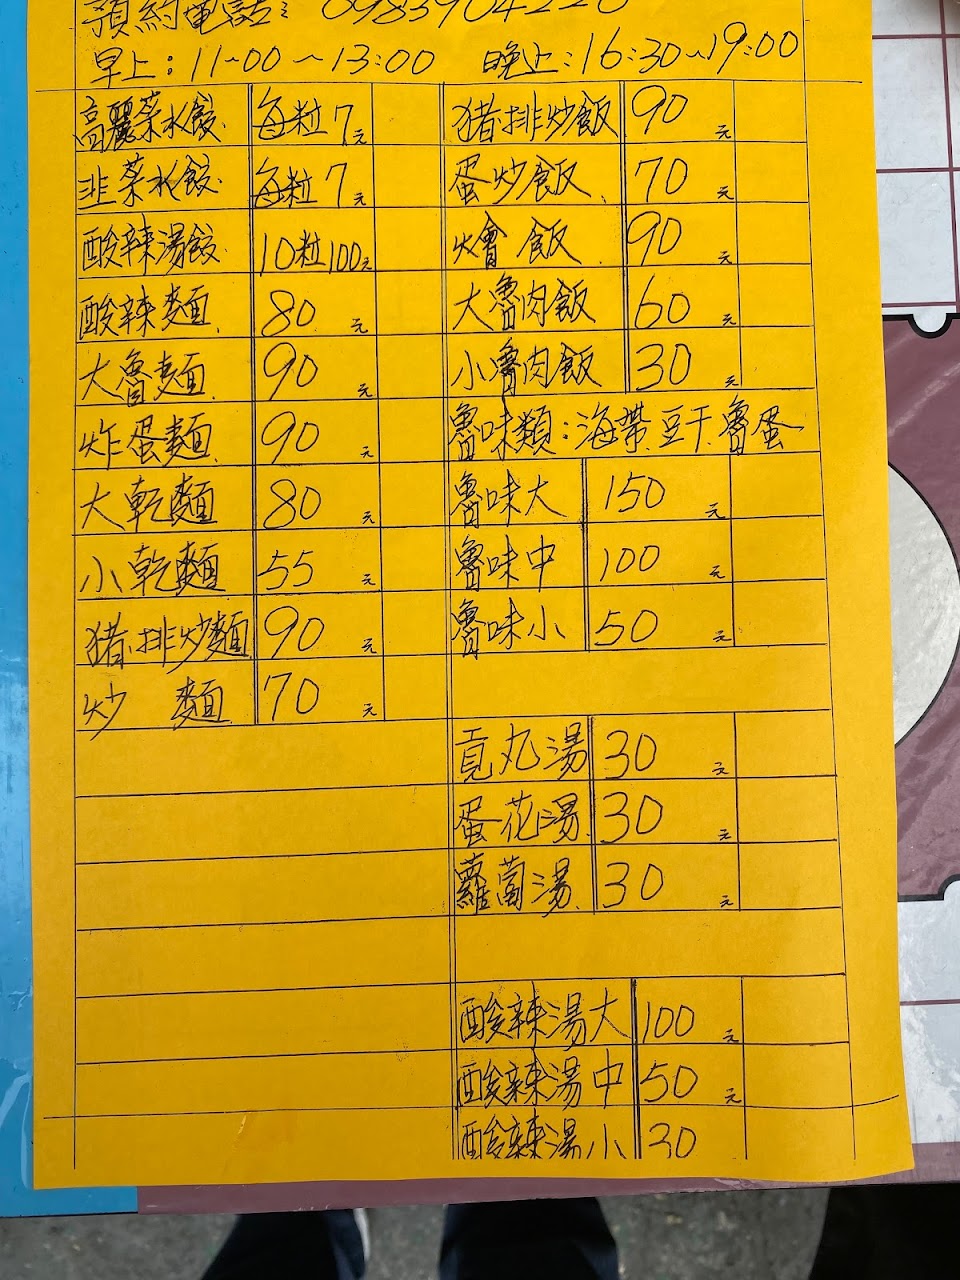 預約電話: 0983904220
早上:11~00~13:00 晚上:16:30~19:00
高麗菜水餃 每粒7元
韭菜水餃 每粒7元
酸辣湯餃 10粒100元
酸辣麵 80元
大魯麵 90元
炸蛋麵 90元
大乾麵 80元
小乾麵 55元
豬排炒麵 90元
炒麵 70元
豬排炒飯 90元
蛋炒飯 70元
燴飯 90元
大魯肉飯 60元
小魯肉飯 30元
魯味類:海帶.豆干.魯蛋
魯味大 150元
魯味中 100元
魯味小 50元
貢丸湯 30元
蛋花湯 30元
蘿蔔湯 30元
酸辣湯大 100元
酸辣湯中 50元
酸辣湯小 30